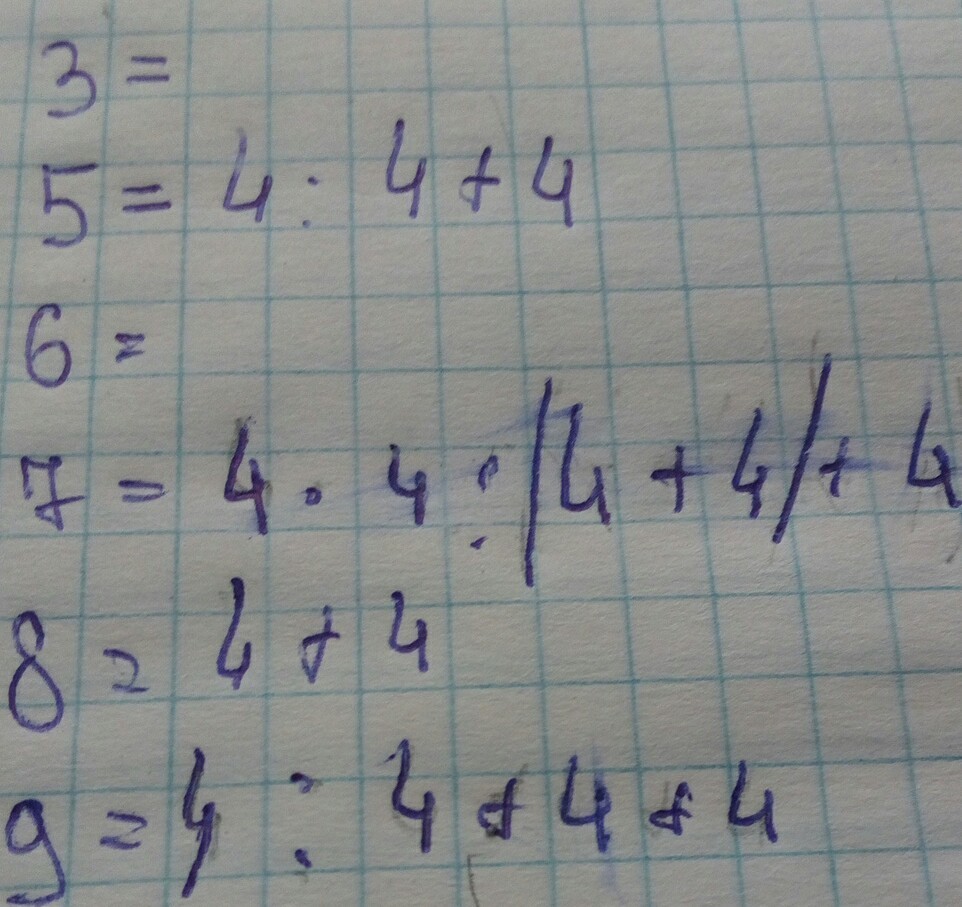 3 =
5 = 4 : 4 + 4
6 =
7 = 4 · 4 : (4 + 4) + 4
8 = 4 + 4
9 = 4 : 4 + 4 + 4